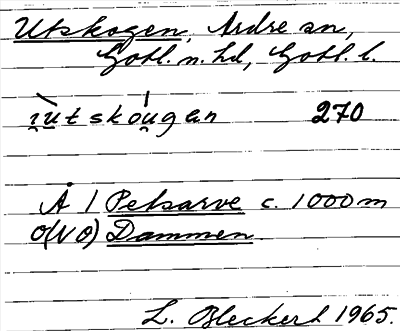 Utskogen, Ardre sn,
Gotl. n. hd, Gotl. l.
ı̯ùtskóu̯gan 270
Å 1 Petsarve c. 1000 m
O(NO) Dammen.
L. Bleckert 1965.